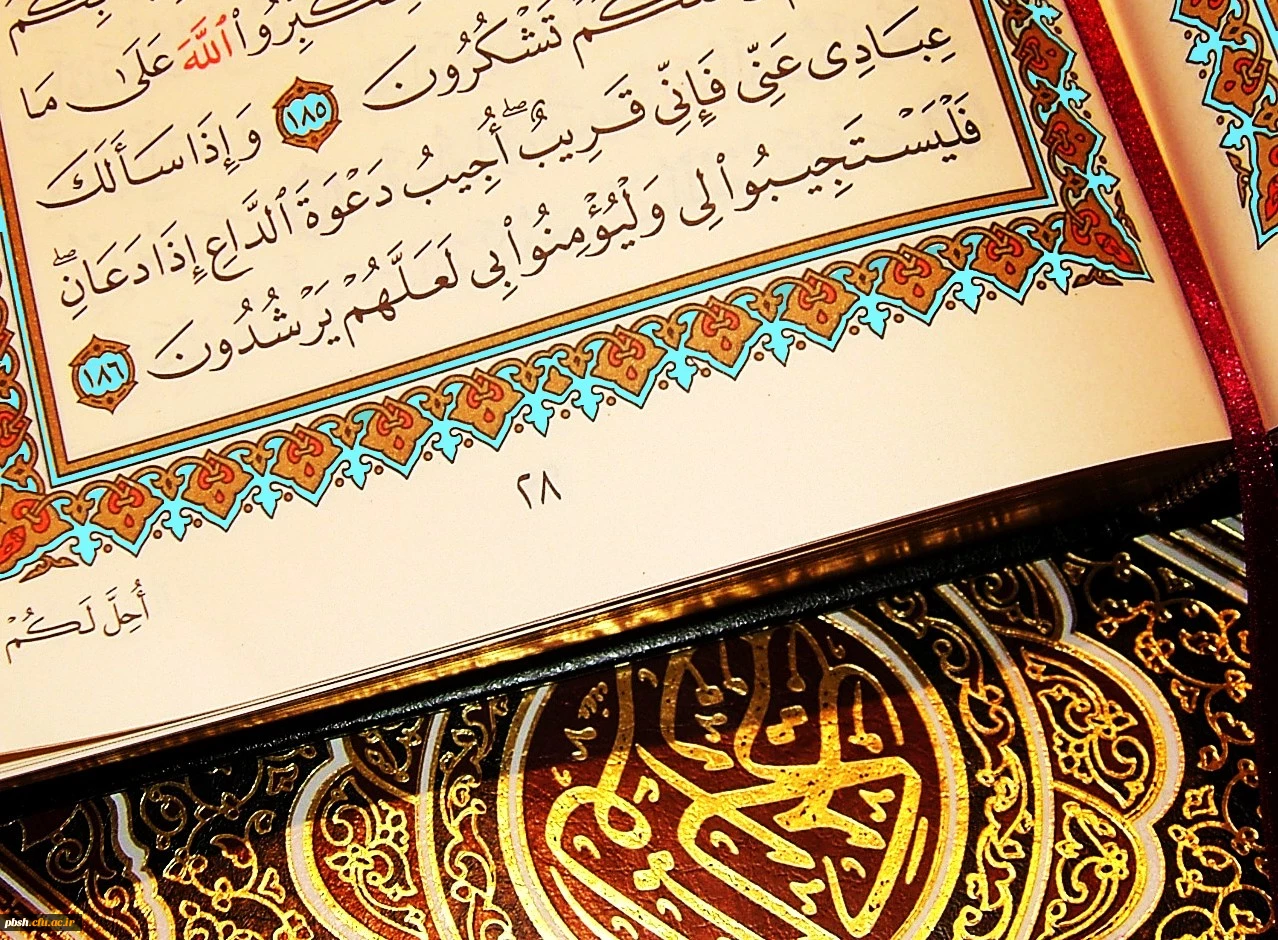 ٱللَّهَ عَلَىٰ مَا
تَشْكُرُونَ ١٨٥ وَإِذَا سَأَلَكَ
عِبَادِى عَنِّى فَإِنِّى قَرِيبٌ ۖ أُجِيبُ دَعْوَةَ ٱلدَّاعِ إِذَا دَعَانِ ۖ
فَلْيَسْتَجِيبُوا۟ لِى وَلْيُؤْمِنُوا۟ بِى لَعَلَّهُمْ يَرْشُدُونَ ١٨٦
٢٨
أُحِلَّ لَكُمْ
pbsh.cfu.ac.ir